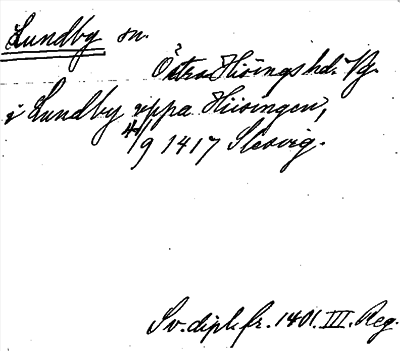 Lundby sn.
Östra Hisings hd. Vg.
i Lundby uppa Hiisingen,
4/9 1417 Slesvig.
Sv. dipl. fr. 1401. III. Reg.